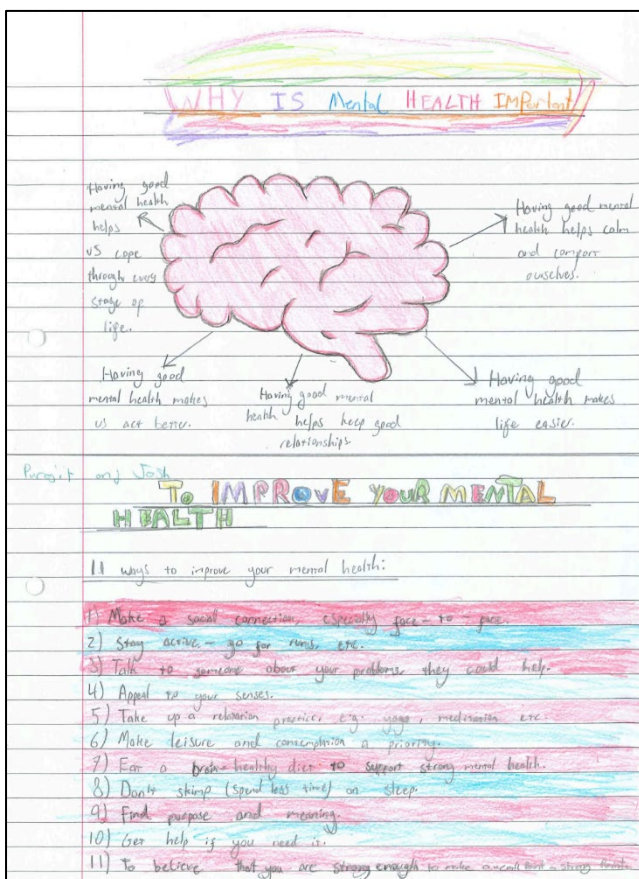 WHY IS Mental HEALTH IMPortant
Having good
mental health
helps
us cope
through every
stage of
life.
Having good mental
health helps calm
and comfort
ourselves.
Having good
mental health makes
us act better.
Having good mental
health helps keep good
relationships.
Having good
mental health makes
life easier.
and Josh
To IMPROVE YOUR MENTAL
HEALTH
11 ways to improve your mental health:
1) Make a social connection, especially face-to-face.
2) Stay active - go for runs, etc.
3) Talk to someone about your problems, they could help.
4) Appeal to your senses.
5) Take up a relaxation practice, e.g. yoga, meditation etc.
6) Make leisure and contemplation a priority.
7) Eat a brain-healthy diet to support strong mental health.
8) Don't skimp (spend less time) on sleep.
9) Find purpose and meaning.
10) Get help if you need it.
11) To believe that you are strong enough to make a a strong